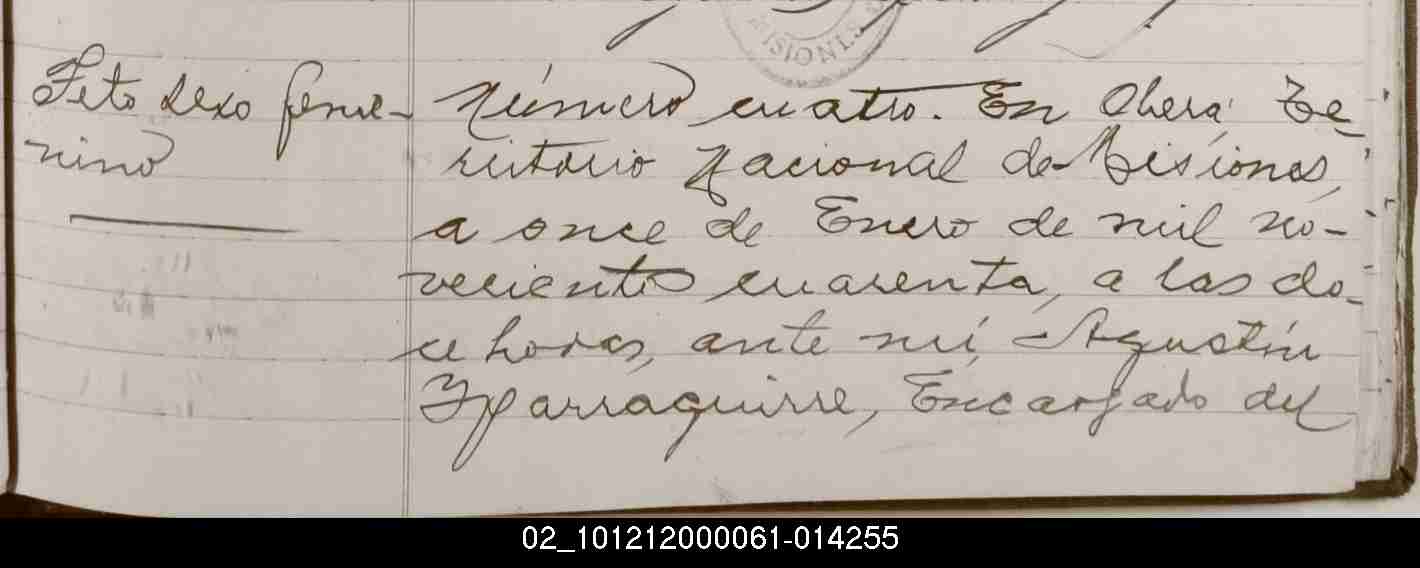 MISIONES
Feto sexo feme-
nino
Número cuatro. En Oberá Te-
rritorio Nacional de Misiones,
a once de Enero de mil no-
vecientos cuarenta, a las do-
ce horas, ante mí, Agustín
Yparraguirre, Encargado del
02_101212000061-014255